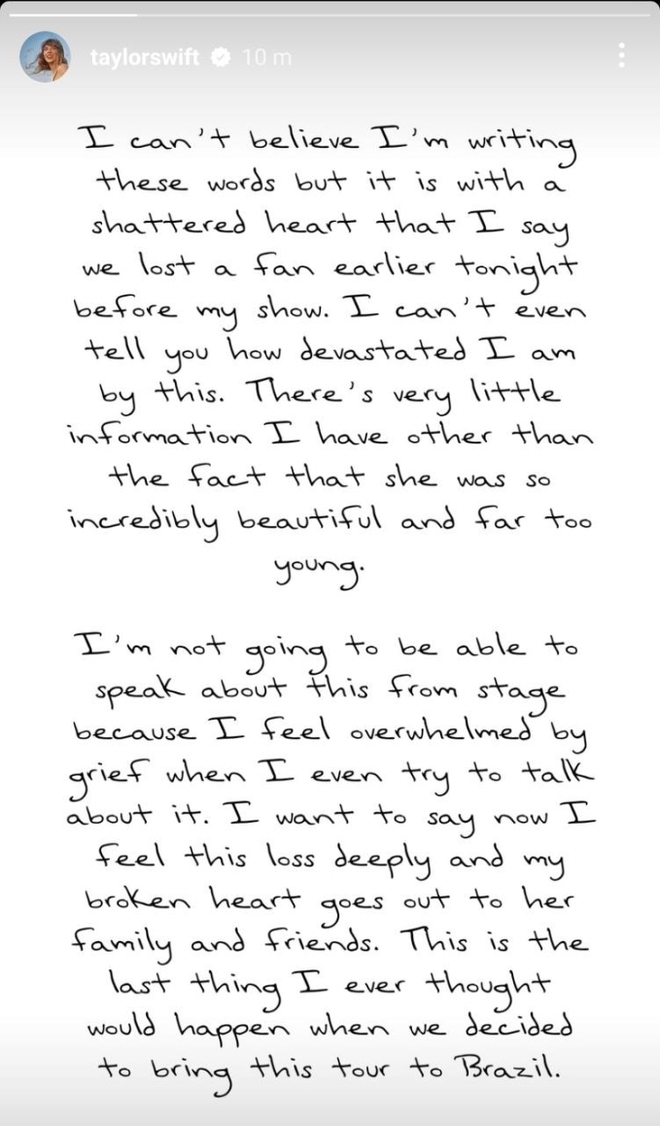 taylorswift 10 m
I can't believe I'm writing
these words but it is with a
shattered heart that I say
we lost a fan earlier tonight
before my show. I can't even
tell you how devastated I am
by this. There's very little
information I have other than
the fact that she was so
incredibly beautiful and far too
young.
I'm not going to be able to
speak about this from stage
because I feel overwhelmed by
grief when I even try to talk
about it. I want to say now I
feel this loss deeply and my
broken heart goes out to her
family and friends. This is the
last thing I ever thought
would happen when we decided
to bring this tour to Brazil.